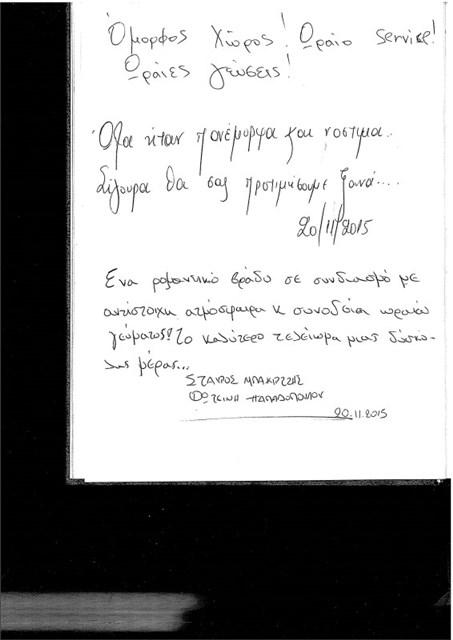 Όμορφος Χώρος! Ωραίο service!
Ωραίες γεύσεις!
Όλα ήταν πανέμορφα και νοστιμα..
Σίγουρα θα σας προτιμήσουμε ξανά....
20/11/2015
Ενα ρομαντικό βράδυ σε συνδιασμό με
αντίστοιχη ατμόσφαιρα κ συνοδεία ωραίου
γεύματος! Το καλύτερο τελείωμα μιας δύσκο-
λης μέρας...
ΣΤΑΥΡΟΣ ΜΠΑΚΙΡΤΖΗΣ
ΦΩΤΕΙΝΗ ΠΑΠΑΔΟΠΟΥΛΟΥ
20.11.2015